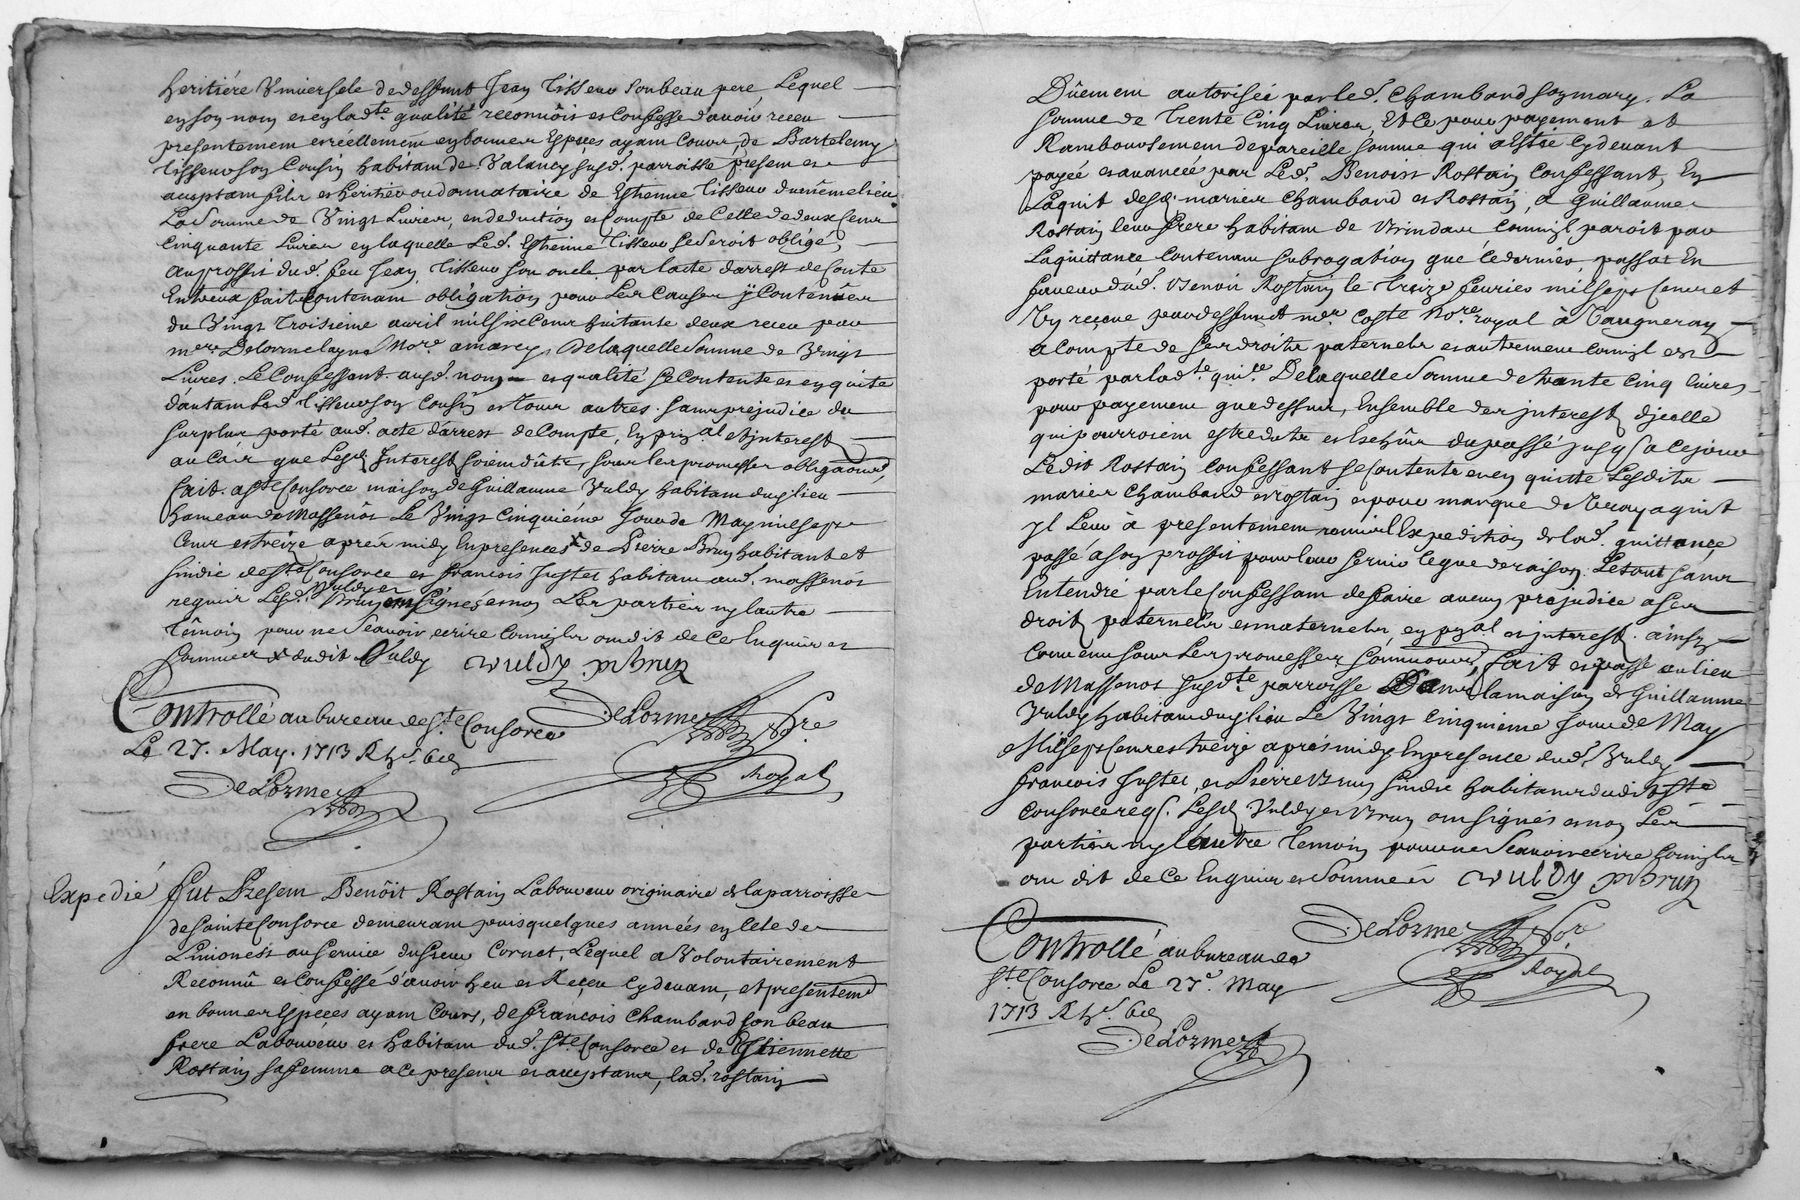 heritiére Universele de deffunt Jean Tisseur son beau pere, Lequel
en son nom et en lad.te qualité reconnois et Confesse d'avoir receu
presentement et réellement en bonnes Espèces ayam Cours, de Bartelemy
Tisseur son Cousin habitam de Valancy susd. parroisse present et
acceptam fils et heritier ou donnataire de Estienne Tisseur du même lieu
La Somme de Vingt Livres, en deduction et Compte de Celle de deux Cent
Cinquante Livres en laquelle Led. Estienne Tisseur Se Seroit obligé,
au proffit dud. feu Jean Tisseur son oncle par lacte d'arrest de Conte
Entreux fait Contenam obligation pour Les Causes ÿ Contenües
du Vingt Troisieme avril mil six Cent huitante deux receu par
m.re Delorme Nore. a marcy, De laquelle Somme de Vingt
Livres. Le Confessant aud. nom et qualité Se Contente et en quite
d'autam Led. Tisseur son Cousin et tous autres. Sans prejudice du
Surplus porté aud. acte d'arrest de Compte, En p.al et Interest
au Cas que Lesd. Interest Soient dûts, sous les promesses obligaoñs,
fait. a Ste Consorce maison de Guillaume Vuldy habitam du lieu
hameau de Massenôt Le Vingt Cinquiéme Jour de May mil Sept
Cent et treize aprés midy En presences x de Pierre Brun habitant et
sindic de Ste Consorce et francois Juttet habitam aud. massenot
requis Lesd. Vuldy et Brun ont Signés et non Les parties ny lautre
Témoin pour ne Scavoir ecrire Comm'ils ont dit de Ce Enquis et
Sommés x dudit Vuldy vuldy. p brun
Controllé au bureau de Ste Consorce DeLorme No.re
Le 27. May. 1713 R h.t 6s Royal
DeLorme
Expedié fut Present Benôit Rostain Laboureur originaire de la parroisse
de Sainte Consorce demeuram puis quelques années en Celle de
Limonest au Service du Sieur Cornet, Lequel a Volontairement
Reconnû et Confessé d'avoir heu et Receu Cy devam, et presentem.t
en bonnes Espèces ayam Cours, de francois Chambard son beau
frere Laboureur et habitam dud. Ste Consorce et de Estiennette
Rostain sa femme a Ce presens et acceptans, lad. rostain
Dûement autorisée par led. Chambard son mary. La
Somme de Trente Cinq Livres, Et Ce pour payement et
Rambourssement de pareille Somme qui a Esté Cy devant
payée et avancée par Led. Benoist Rostain Confessant, En
Laquit desd. mariés Chambard et Rostain, a Guillaume
Rostain leur frere habitam de Brindas Comm'il paroit par
Laquittance Contenam Subrogation que Ce dernier, passat En
faveur dud. Benoit Rostain le Treize fevrier mil Sept Cent et
receue par deffunct m.e Coste Nore. royal à Vaugneray
a Compte de Ses droits paternels et autrement Comm'il est
porté par lad.te quit.ce De laquelle Somme de trante Cinq livres
pour payement que dessus, Ensemble des Interest d'jcelle
qui pourroient estre duts et Escheûs du passé jusqu'a Ce jour
Ledit Rostain Confessant Se Contente et en quitte Lesdits
mariés Chambard et rostain et pour marque de Vray aquit
Jl Leur à presentement remis l'Expedition de lad. quittance
passé a Son proffit pour leur Servir Ce que de raison. Le tout Sans
Entendre par le Confessant de faire aucun prejudice a Ses
droits paternels et maternels, en p.al et interest. ainsy
Convenu Sous Les promesses Soumissions, fait et passé au lieu
de Massenot Susd.te parroisse Dans la maison de Guillaume
Vuldy habitam du lieu Le Vingt Cinquieme Jour de May
Mil Sept Cent et treize aprés midy En presence dud. Vuldy
francois Juttet, et Pierre Brun Sindic habitans dudit Ste
Consorce req.s. Lesd. Vuldy et Brun ont signés et non Les
parties ny l'autre Temoin pour ne Scavoir ecrire Comm'ils
ont dit de Ce Enquis et Sommés vuldy p brun
Controllé au bureau de DeLorme No.re
Ste Consorce Le 27e. May Royal
1713 R h.t 6s
DeLorme